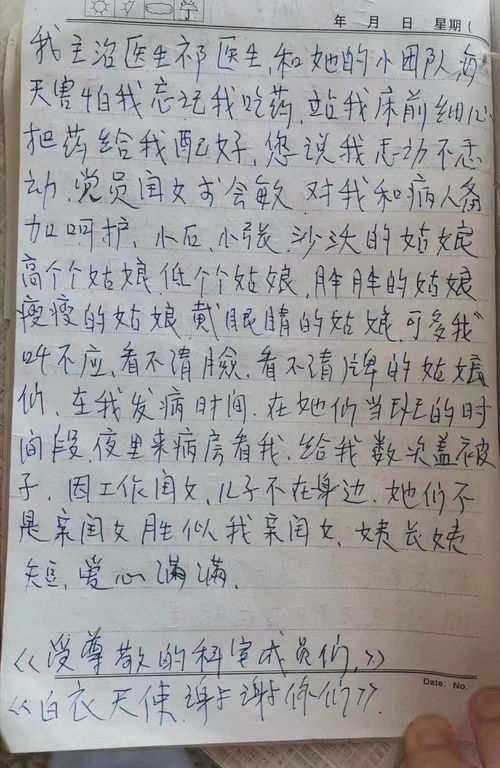 年 月 日 星期(
我主治医生祁医生,和她的小团队,每
天害怕我忘记我吃药,站我床前细心
把药给我配好,您说我感动不感
动,党员闰女 对我和病人备
加呵护,小石,小张,沙沃的姑娘
高个个姑娘,低个个姑娘,胖胖的姑娘
瘦瘦的姑娘 戴眼睛的姑娘,可多我
叫不应,看不清脸,看不清牌的姑娘
们,在我发病时间,在她们当班的时
间段,夜里来病房看我,给我数次盖被
子,因工作闰女,儿子不在身边,她们不
是亲闰女胜似我亲闰女,姨长姨
短,爱心满满,
《受尊敬的科室成员们,》
Date. No.
《白衣天使,谢谢你们》.